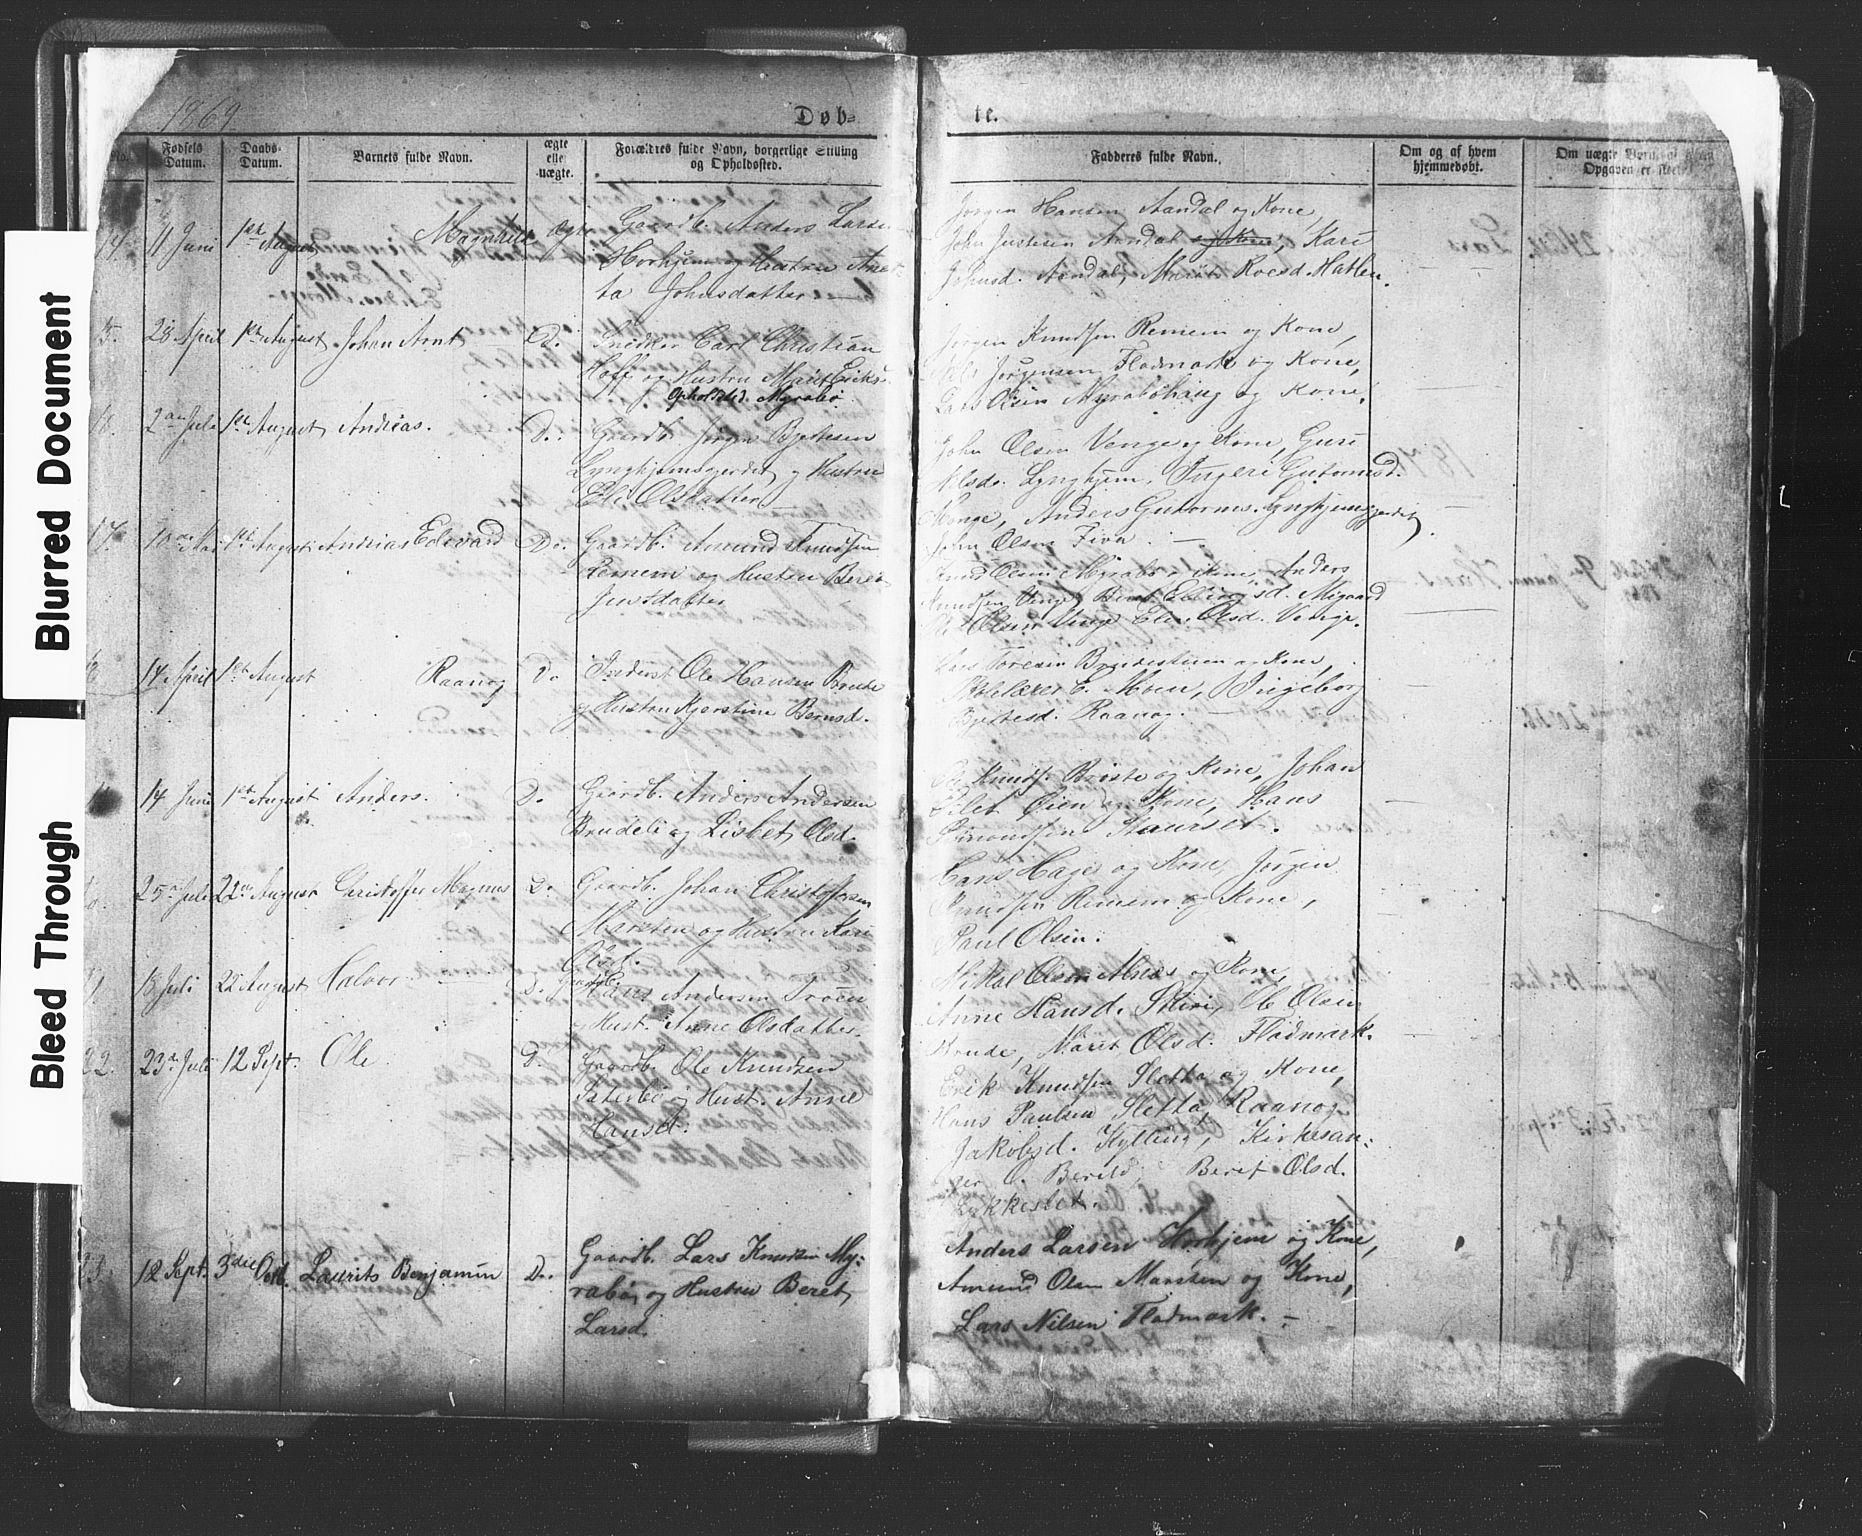 Blurred Document
Bleed Through
1869
Døb=
te.
No.
Fødsels Datum.
Daabs- Datum.
Barnets fulde Navn.
ægte elle uægte.
Forældres fulde Navn, borgerlige Stilling og Opholdssted.
Fadderes fulde Navn.
Om og af hvem hjemmedøbt.
Om uægte Børn
Opgaven er
14. 11 Juni 1ste August Magnhild ægte Gaardb. Anders Larsen
Horhjem og Hustru Anet-
ta Johnsdatter —
Jørgen Hansen Aandal og Kone,
John Justesen Aandal og Kone, Kari
Johnsd. Aandal, Marit Roesd. Hatlen.
15. 28 April 1ste August Johan Arnt Do. Snedker Carl Christian
Hoff og Hustru Marit Eriks-
Opholdsted Myrabø
Jørgen Knudsen Remem og Kone,
Nils Jørgensen Fladmark og Kone,
Lars Olsen Myrabøhaug og Kone.
16. 2den Juli 1ste August Andreas. Do. Gaardb. Jørgen Bjettesen
Lynghjemsgjerdet og Hustru
Eli Olsdatter —
John Olsen Venge og Kone, Guri
Nilsd. Lynghjem, Ingeri Gutormsd.
Venge, Anders Gutormsen Lynghjemsgjerdet,
John Olsen Fiva. —
17. Mai 1ste August Andreas Edevard Do. Gaardb. Amund Knudsen
Remem og Hustru Beret
Jensdatter
Knud Olsen Myrabø og Kone, Anders
Knudsen Venge, Beret Ellingsd. Migaard
Ole Olsen Venge, Eli Olsd. Venge.
18. 14 April 1ste August Raanog Do. Inderst Ole Hansen Brude
og Hustru Kjerstine Berntsd.
Toresen og Kone,
E. Moen, Ingeborg
Bjettesd. Raanog. —
14 Juni 1ste August Anders. Do. Gaardb. Anders Andersen
Brudeli og Lisbet Olsd.
Ole Knuds. Brøste og Kone, Johan
Øien og Kone, Hans
Simonsen Staurset.
25de Juli 22de August Christoffer Magnus Do. Gaardb. Johan Christoffersen
Marsten og Hustru Kari
Olsd.
Hans Hage og Kone, Jørgen
Knudsen Remem og Kone,
Paul Olsen.
18 Juli 22 August Halvor Do. Gaardb.
Hans Andersen Troen
og Hust. Anne Olsdatter
Mikal Olsen Alnæs og Kone,
Anne Hansd. Skiri, Ole Olsen
Brude, Marit Olsd. Fladmark.
22. 23de Juli 12 Sept. Ole Do. Gaardb. Ole Knudsen
Sæterbø og Hust. Anne
Hansd.
Erik Knudsen Sletta og Kone,
Hans Paulsen Sletta, Raanog
Jakobsd. Kylling, Kirkesan-
ger O. Berild, Beret Olsd.
Lykkeslet.
23. 12 Sept. 3die Octb. Laurits Benjamin Do. Gaardb. Lars Knudsen My-
rabø og Hustru Beret
Larsd.
Anders Larsen Horhjem og Kone,
Amund Olsen Marsten og Kone,
Lars Nilsen Fladmark. —